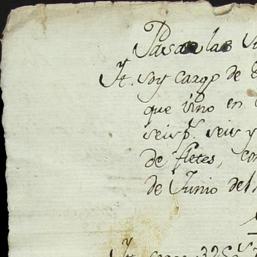 Pasa las
Yt. soy cargo de
que vino en
seis p.s seis y
de fletes, co
de Junio del
Yt. cargo 325 p.s